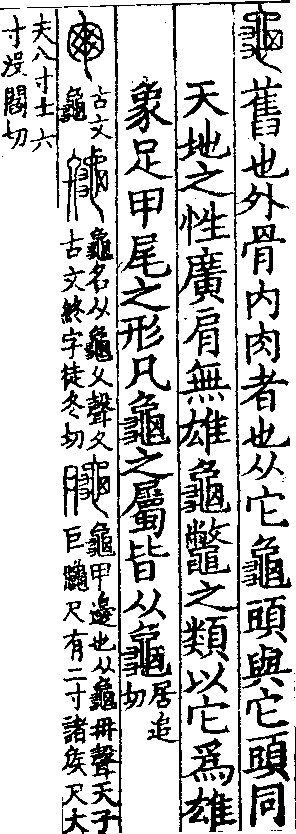 龜舊也外骨內肉者也从它龜頭與它頭同
天地之性廣肩無雄龜鼈之類以它爲雄
象足甲尾之形凡龜之屬皆从龜居追切
古文龜
龜名从龜夂聲夂
古文終字徒冬切
龜甲邊也从龜冉聲天子
巨龜尺有二寸諸矦尺大
夫八寸士六
寸沒閻切